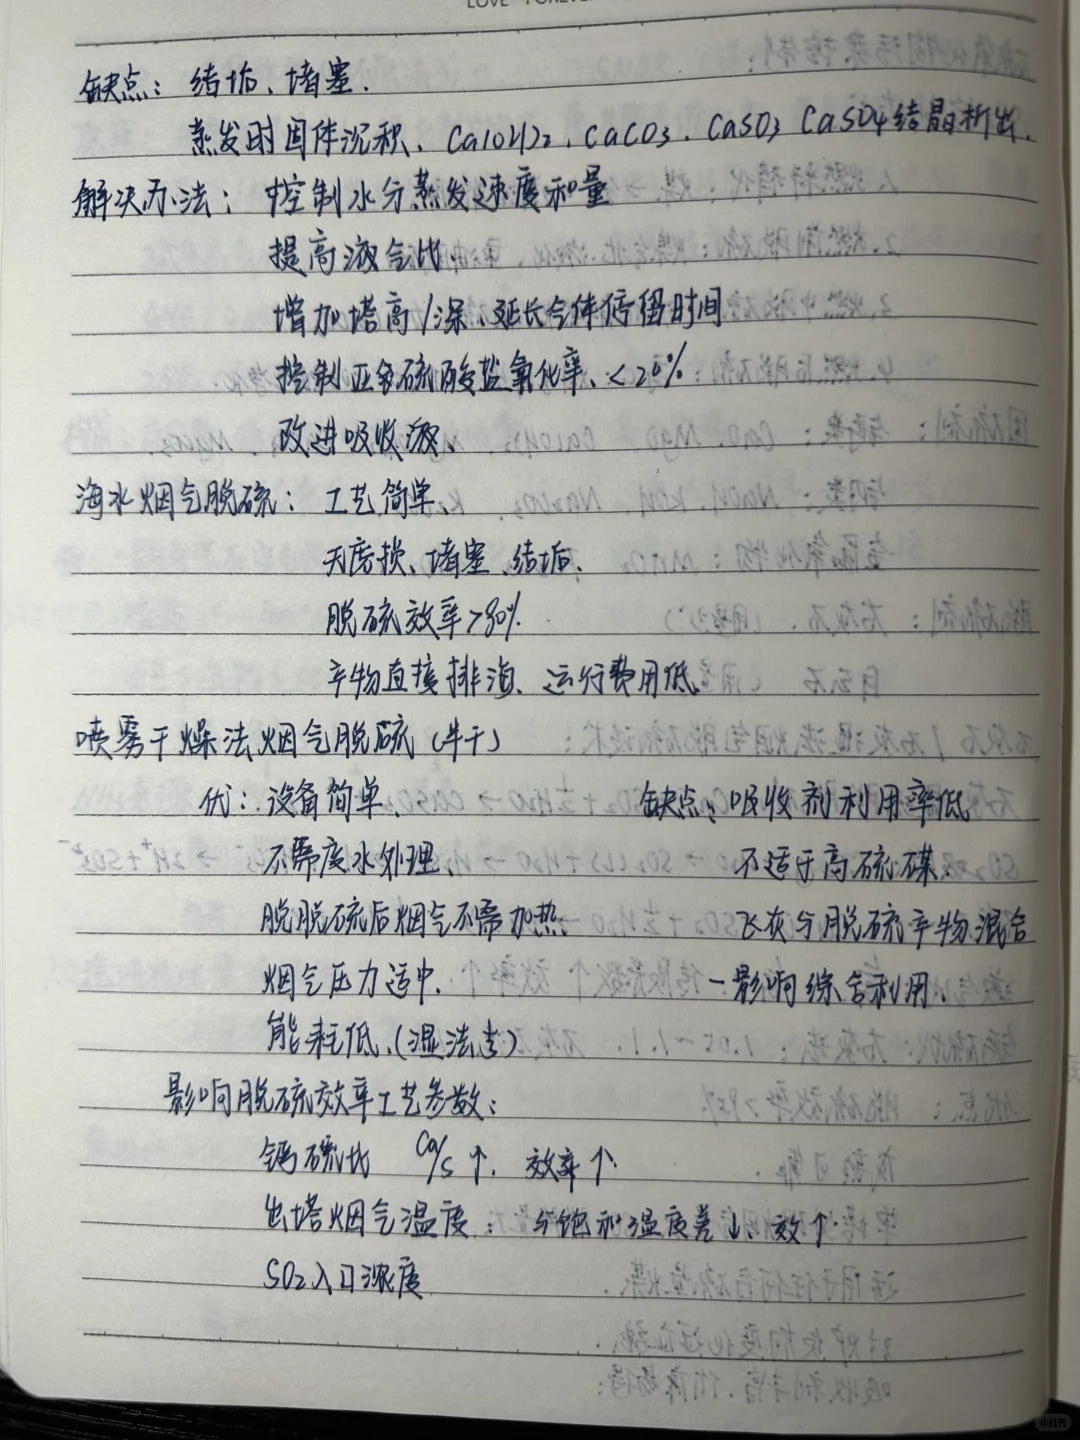 LOVE FOREVER
缺点：结垢、堵塞.
蒸发时固体沉积、Ca(OH)2、CaCO3、CaSO3 CaSO4结晶析出.
解决办法：控制水分蒸发速度和量
提高液气比.
增加塔高/深、延长气体停留时间
控制亚硫酸盐氧化率、<20%
改进吸收液.
海水烟气脱硫：工艺简单.
无磨损、堵塞、结垢.
脱硫效率>90%.
产物直接排海、运行费用低.
喷雾干燥法烟气脱硫(半干)
优：设备简单、 缺点：吸收剂利用率低
不需废水处理、 不适于高硫煤.
脱脱硫后烟气不需加热. 飞灰与脱硫产物混合
烟气压力适中. 一影响综合利用.
能耗低、(湿法专)
影响脱硫效率工艺参数：
钙硫比 Ca/S↑. 效率↑.
出塔烟气温度：与饱和温度差↓. 效↑.
SO2入口浓度
小红书